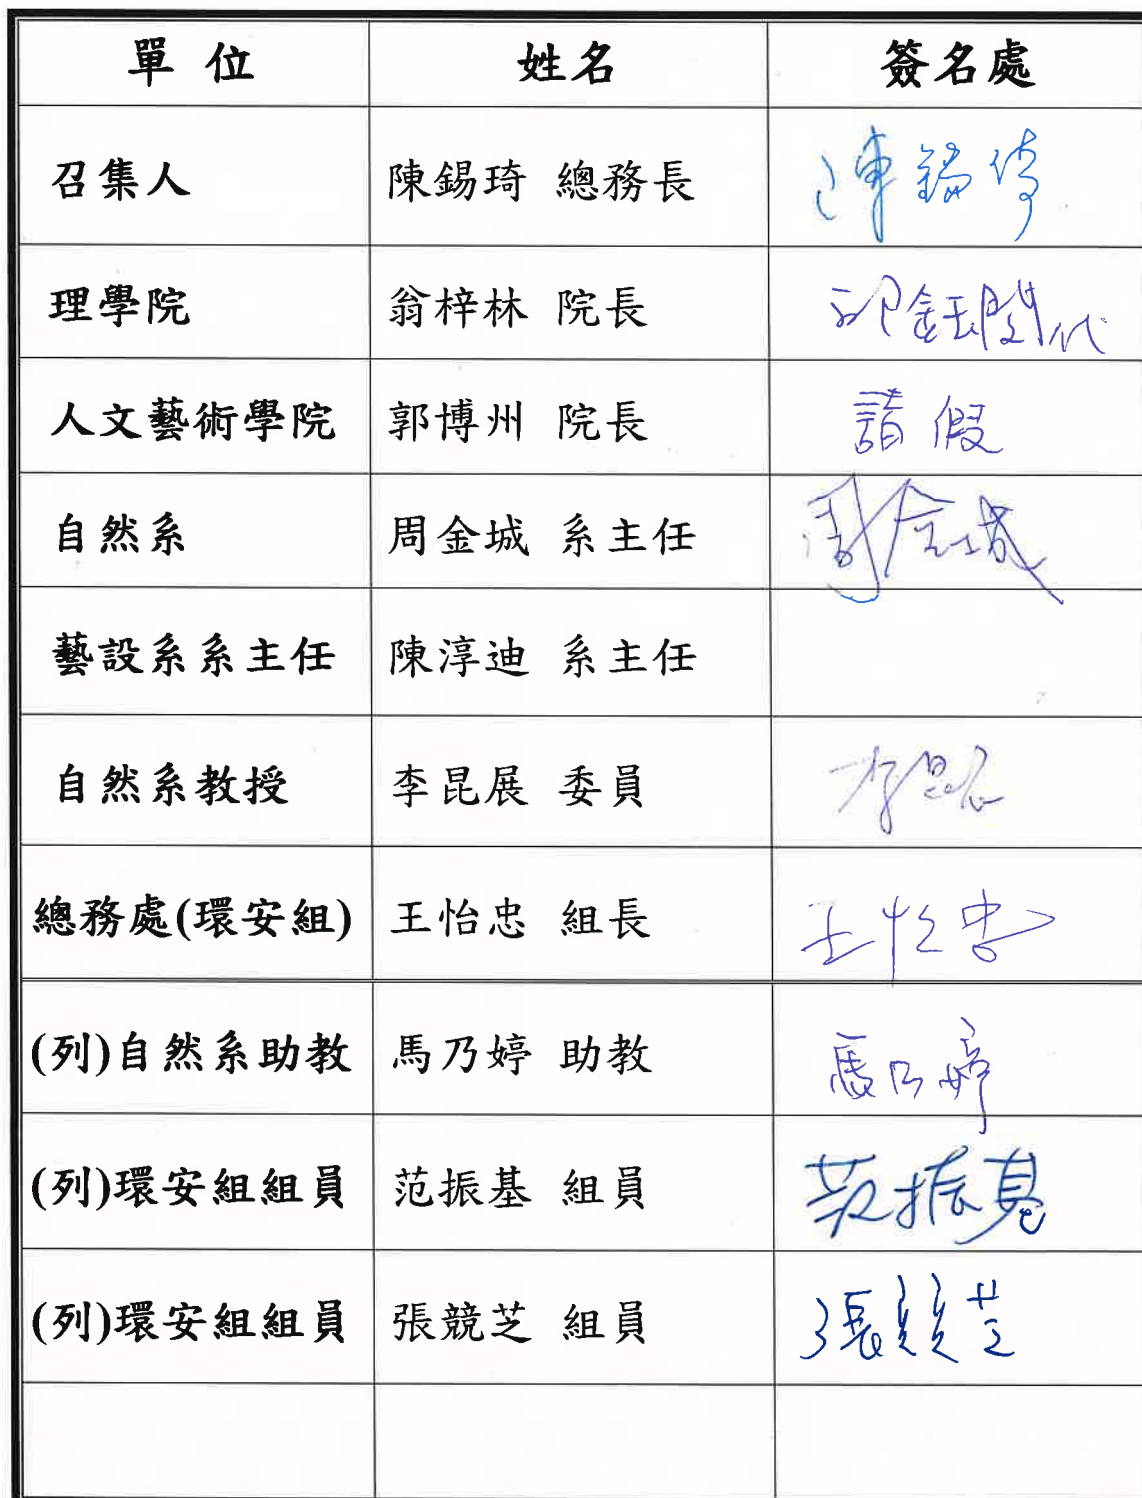 單位 姓名 簽名處
召集人 陳錫琦 總務長 陳錫琦
理學院 翁梓林 院長 邱鈺閔代
人文藝術學院 郭博州 院長 請假
自然系 周金城 系主任 周金城
藝設系系主任 陳淳迪 系主任
自然系教授 李昆展 委員 李昆展
總務處(環安組) 王怡忠 組長 王怡忠
(列)自然系助教 馬乃婷 助教 馬乃婷
(列)環安組組員 范振基 組員 范振基
(列)環安組組員 張競芝 組員 張競芝